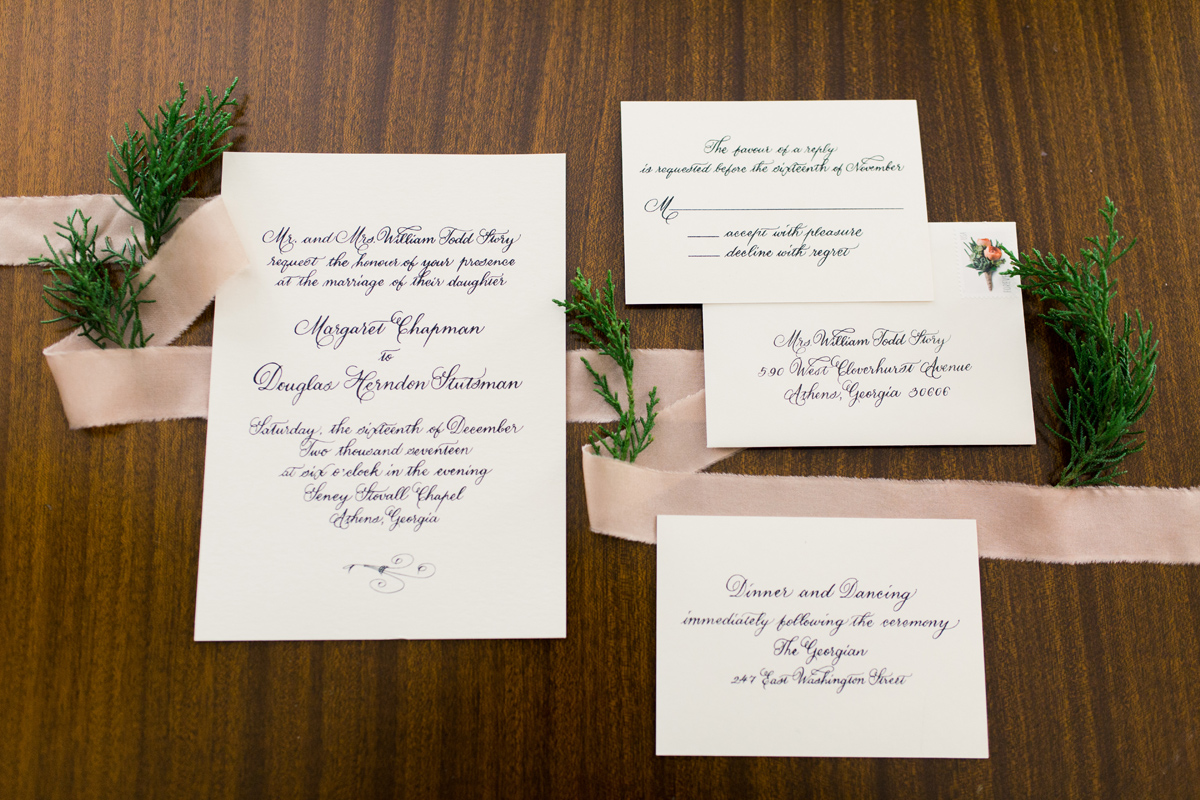 Mr. and Mrs. William Todd Story
request the honour of your presence
at the marriage of their daughter
Margaret Chapman
to
Douglas Herndon Stutsman
Saturday, the sixteenth of December
Two thousand seventeen
at six o'clock in the evening
Seney Stovall Chapel
Athens, Georgia
The favour of a reply
is requested before the sixteenth of November
M
accept with pleasure
decline with regret
Mrs. William Todd Story
590 West Cloverhurst Avenue
Athens, Georgia 30606
Dinner and Dancing
immediately following the ceremony
The Georgian
247 East Washington Street